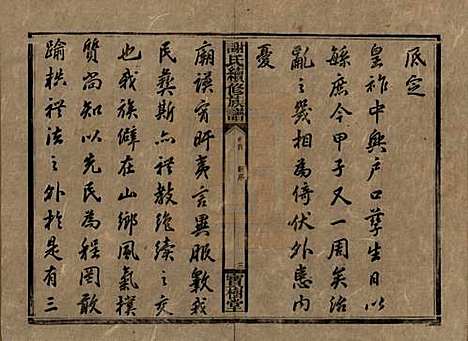 底定
皇祚中興戶口孳生日以
繇庶今甲子又一周矣治
亂之幾相為倚伏外患內
憂
謝氏續修族譜
卷首
新序
三
寶樹堂
廟謨宵旰夷言異服斁我
民彝斯亦禮教絕續之交
也我族僻在山鄉風氣樸
質尚知以先民為程罔敢
踰越禮法之外於是有三